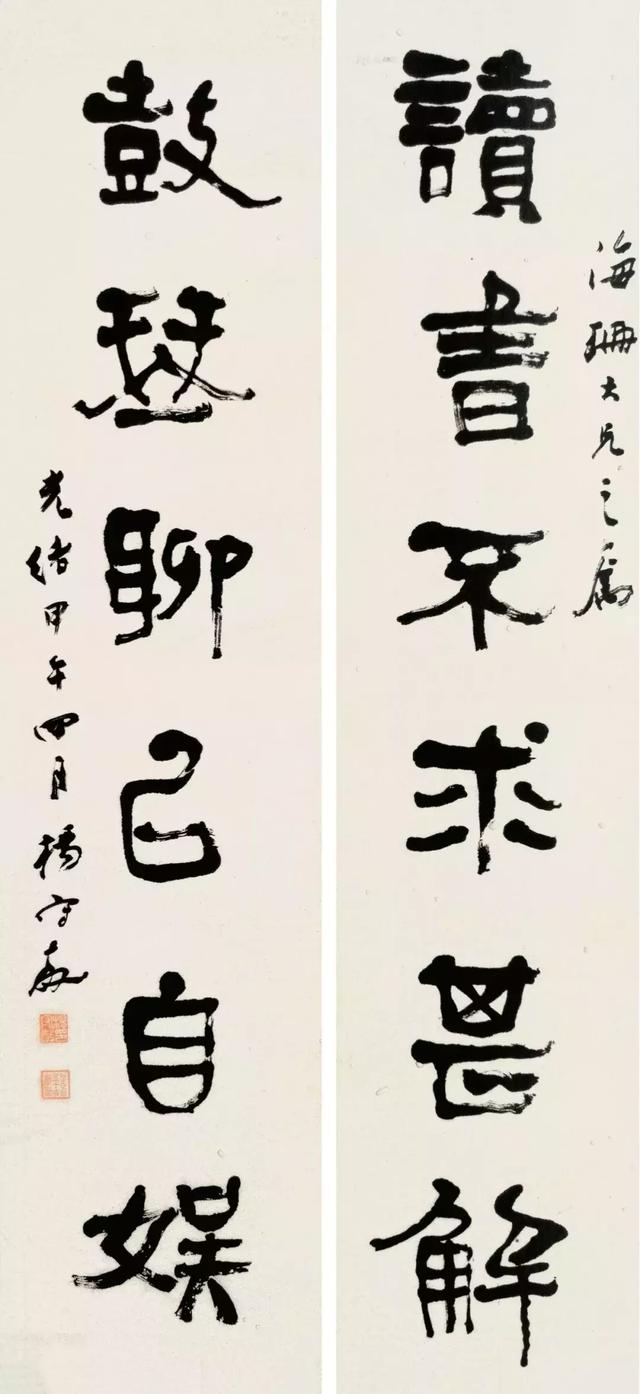 海珊大兄之屬
讀書不求甚解
鼓琴聊以自娛
光緒甲午四月楊守敬